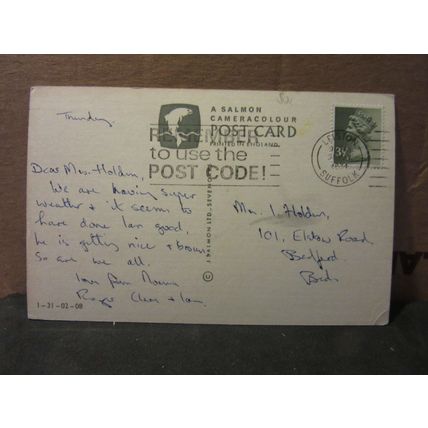 Thursday.
A SALMON
CAMERACOLOUR
POST CARD
PRINTED IN ENGLAND
REMEMBER
to use the
POST CODE!
SUFFOLK
3½
Dear Mrs. Holden,
We are having super
weather & it seems to
have done Ian good,
he is getting nice & brown
So are we all.
love from
Roger Clare & Ian.
J. SALMON LTD., SEVENOAKS
©
1-31-02-08
Mrs. I. Holden,
101, Elstow Road,
Bedford
Beds